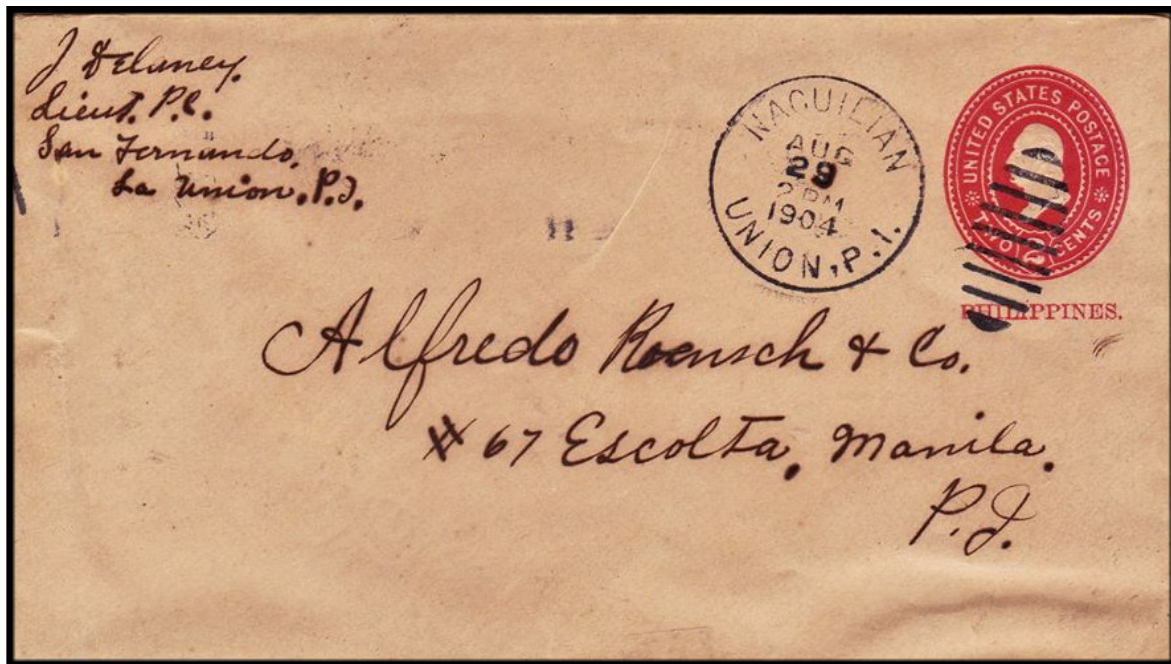 J Delaney.
Lieut. P.C.
San Fernando,
La Union. P.I.
NAGUILIAN
AUG
29
2 PM
1904
UNION, P. I.
UNITED STATES POSTAGE
TWO 2 CENTS
PHILIPPINES.
Alfredo Roensch & Co.
# 67 Escolta, Manila.
P.I.